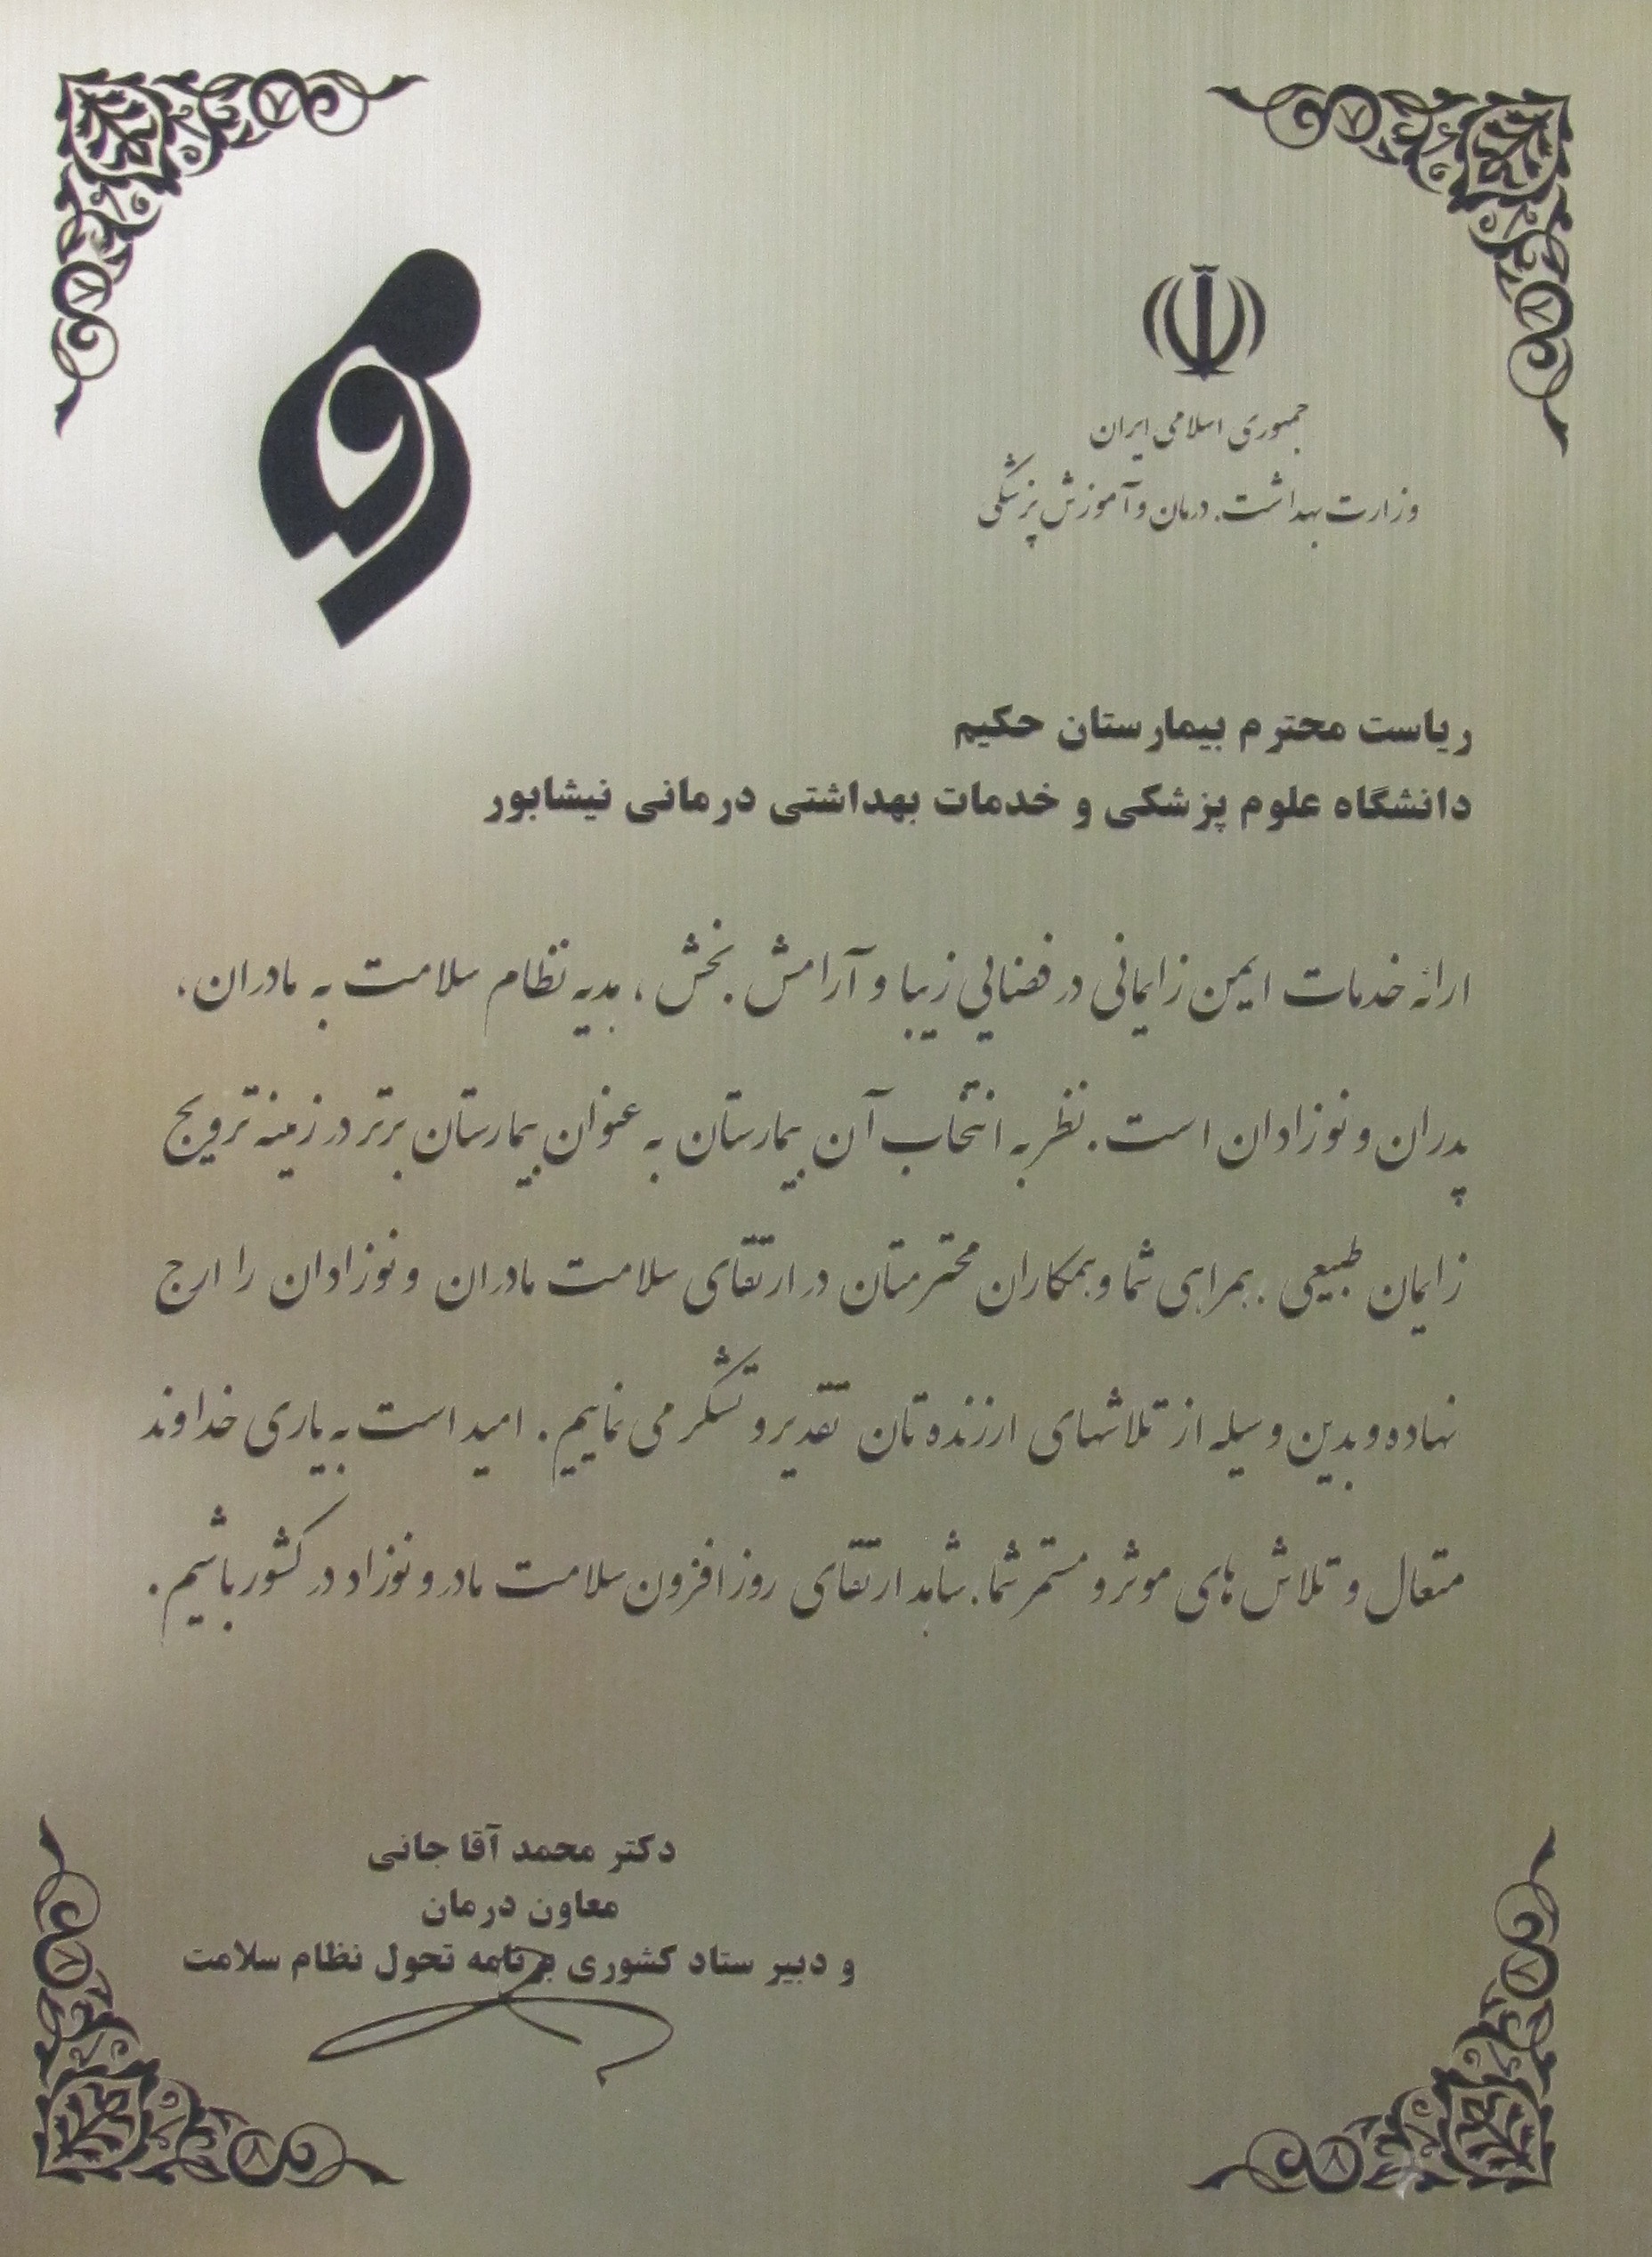 جمهوری اسلامی ایران
وزارت بهداشت، درمان و آموزش پزشکی
ریاست محترم بیمارستان حکیم
دانشگاه علوم پزشکی و خدمات بهداشتی درمانی نیشابور
ارائه خدمات ایمن زایمانی در فضایی زیبا و آرامش بخش، هدیه نظام سلامت به مادران،
پدران و نوزادان است. نظر به انتخاب آن بیمارستان به عنوان بیمارستان برتر در زمینه ترویج
زایمان طبیعی، همراهی شما و همکاران محترمتان در ارتقای سلامت مادران و نوزادان را ارج
نهاده و بدین وسیله از تلاشهای ارزنده تان تقدیر و تشکر می نماییم. امید است به یاری خداوند
متعال و تلاش های موثر و مستمر شما، شاهد ارتقای روز افزون سلامت مادر و نوزاد در کشور باشیم.
دکتر محمد آقا جانی
معاون درمان
و دبیر ستاد کشوری برنامه تحول نظام سلامت